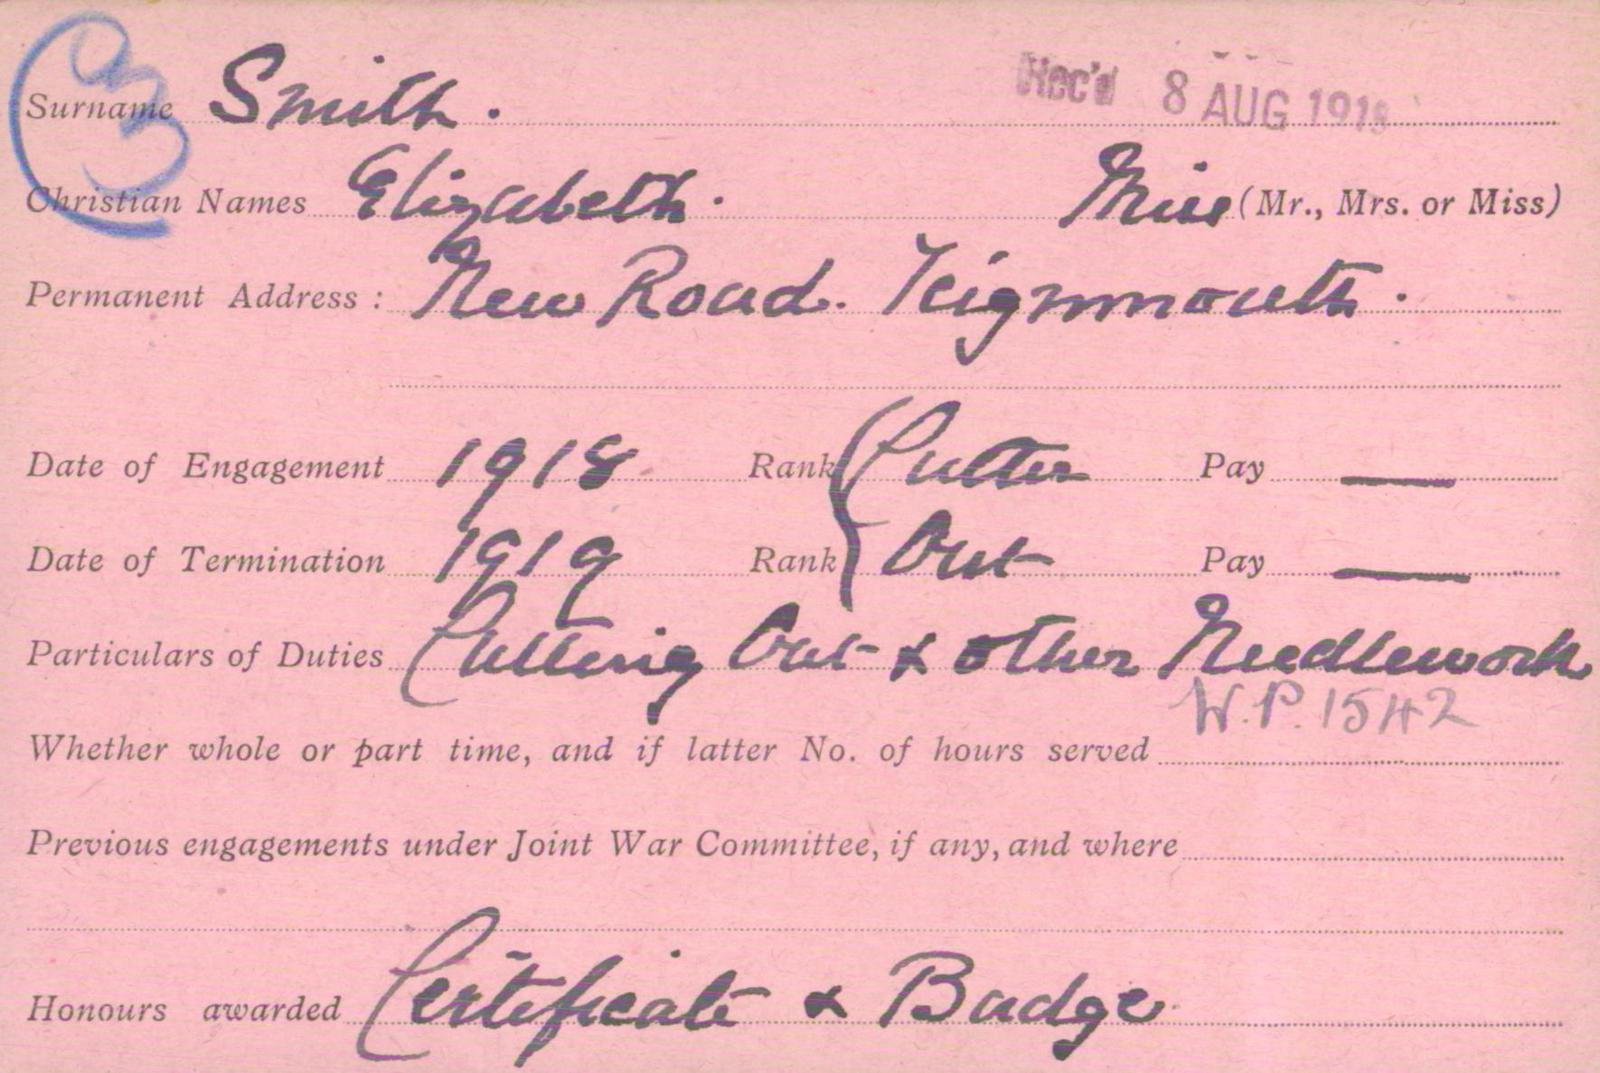 Surname Smith. Rec'd 8 AUG 1919
Christian Names Elizabeth. Miss (Mr., Mrs. or Miss)
Permanent Address: New Road. Teignmouth.
Date of Engagement 1918 Rank Cutter Pay —
Date of Termination 1919 Rank Out Pay —
Particulars of Duties Cutting Out & other Needlework
W.P. 1542
Whether whole or part time, and if latter No. of hours served
Previous engagements under Joint War Committee, if any, and where
Honours awarded Certificate & Badge